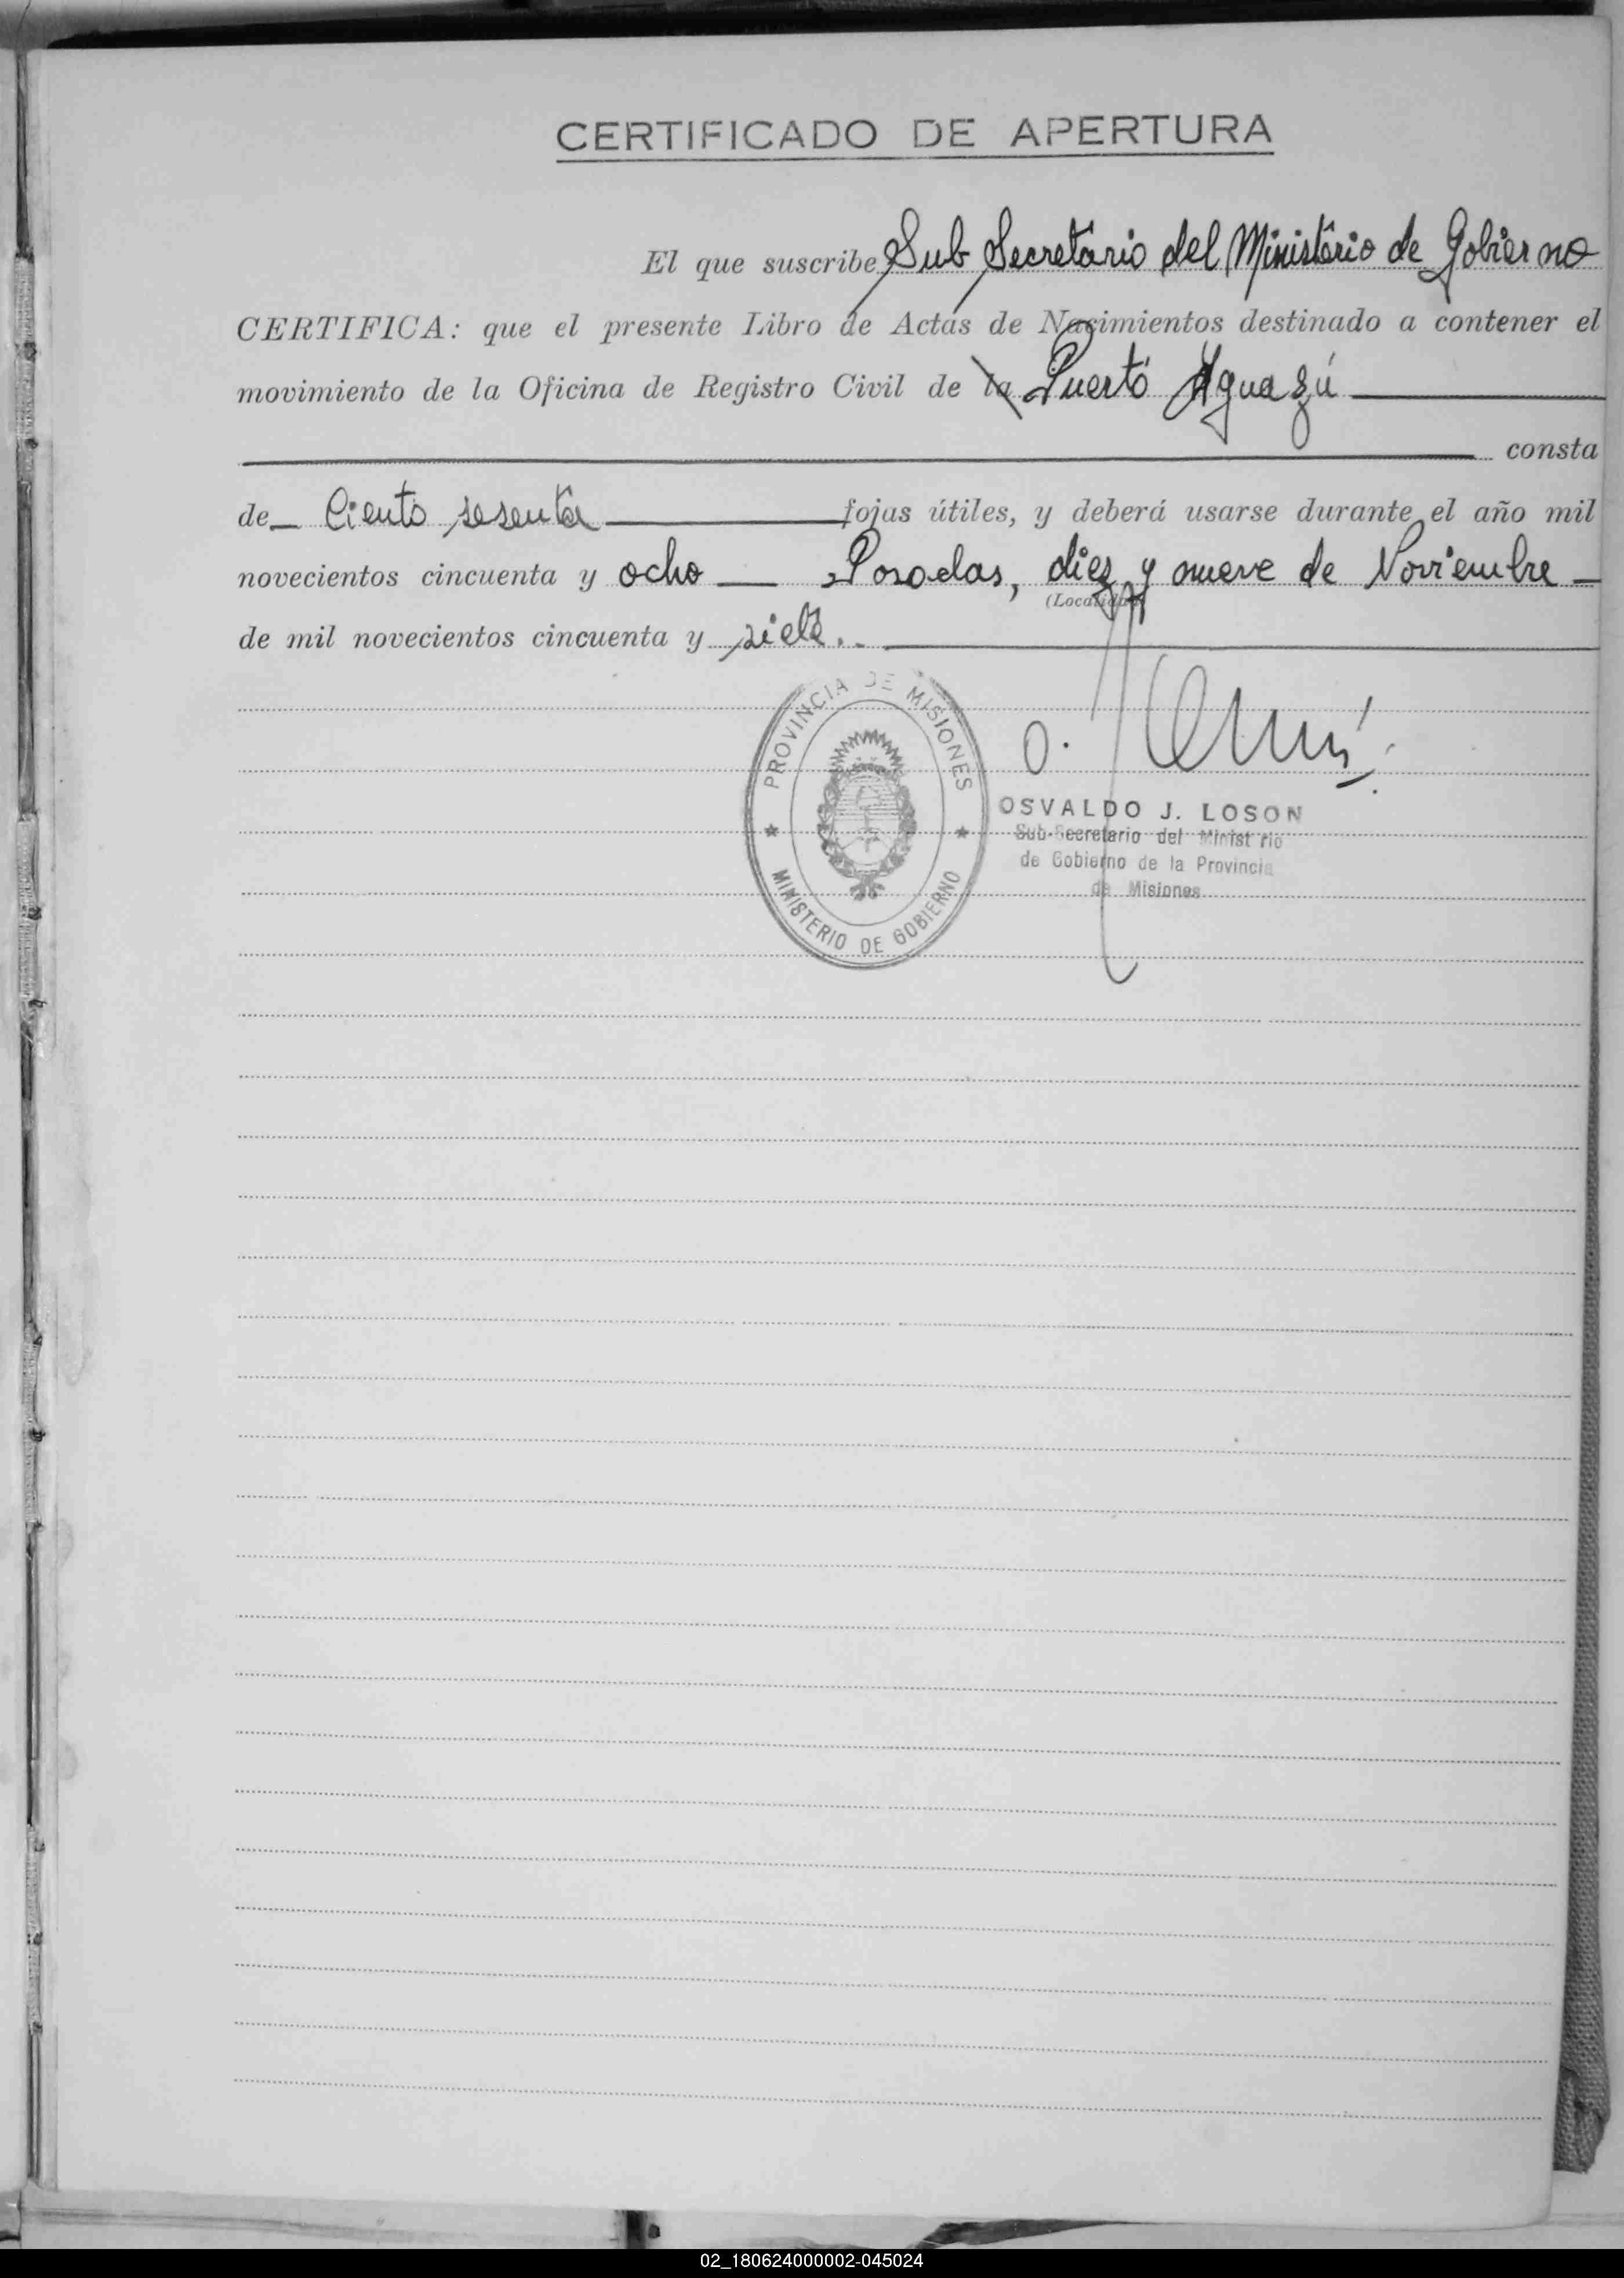 CERTIFICADO DE APERTURA
El que suscribe Sub Secretario del Ministerio de Gobierno
CERTIFICA: que el presente Libro de Actas de Nacimientos destinado a contener el
movimiento de la Oficina de Registro Civil de la Puerto Iguazú
consta
de Ciento sesenta fojas útiles, y deberá usarse durante el año mil
novecientos cincuenta y ocho Posadas, diez y nueve de Noviembre
(Localidad)
de mil novecientos cincuenta y siete.
PROVINCIA DE MISIONES
MINISTERIO DE GOBIERNO
OSVALDO J. LOSON
Sub-Secretario del Ministerio
de Gobierno de la Provincia
de Misiones
02_180624000002-045024